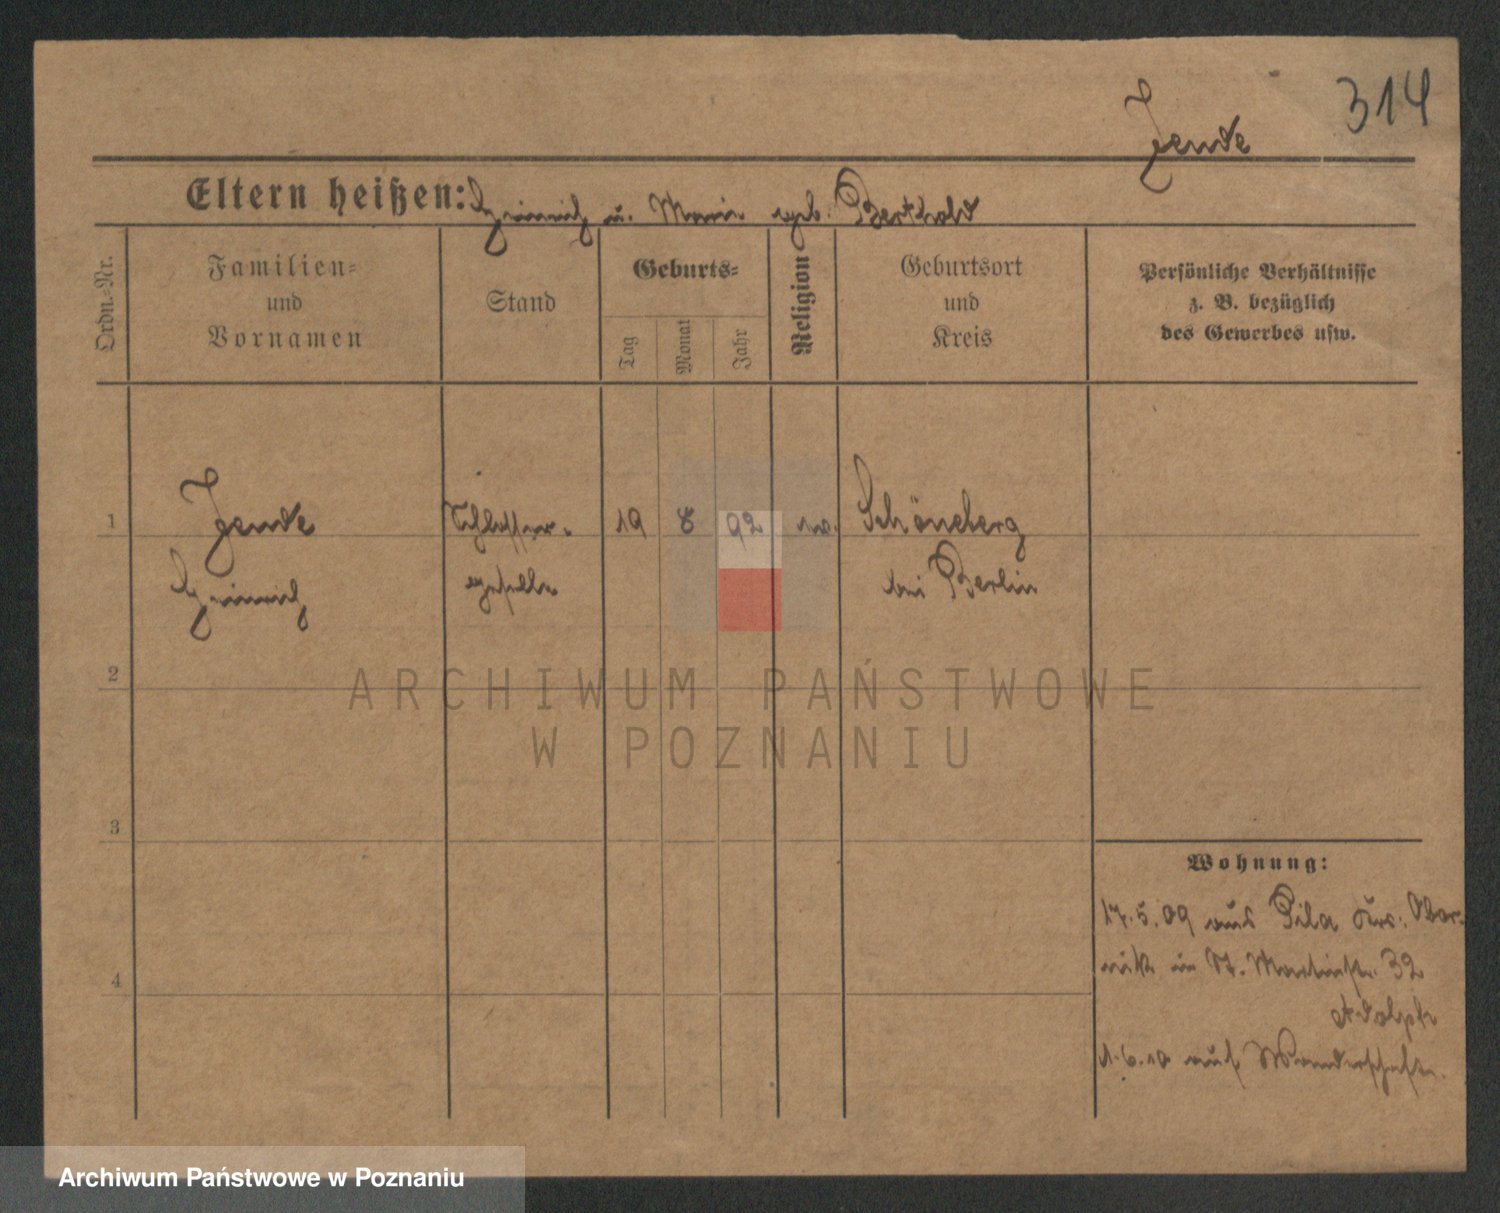 314
Jende
Eltern heißen: Heinrich u. Marie geb. Berthold
Ordn.-Nr.
Familien-
und
Vornamen
Stand
Geburts-
Tag
Monat
Jahr
Religion
Geburtsort
und
Kreis
Persönliche Verhältnisse
z. B. bezüglich
des Gewerbes usw.
1
Jende
Heinrich
Schlosser-
geselle
19
8
92
ev.
Schöneberg
bei Berlin
2
3
4
Wohnung:
17.5.09 aus Pila Krs. Obor-
nik in St. Martinstr. 32
Adolph
1.6.10 auf Wanderschaft.
ARCHIWUM PAŃSTWOWE
W POZNANIU
Archiwum Państwowe w Poznaniu